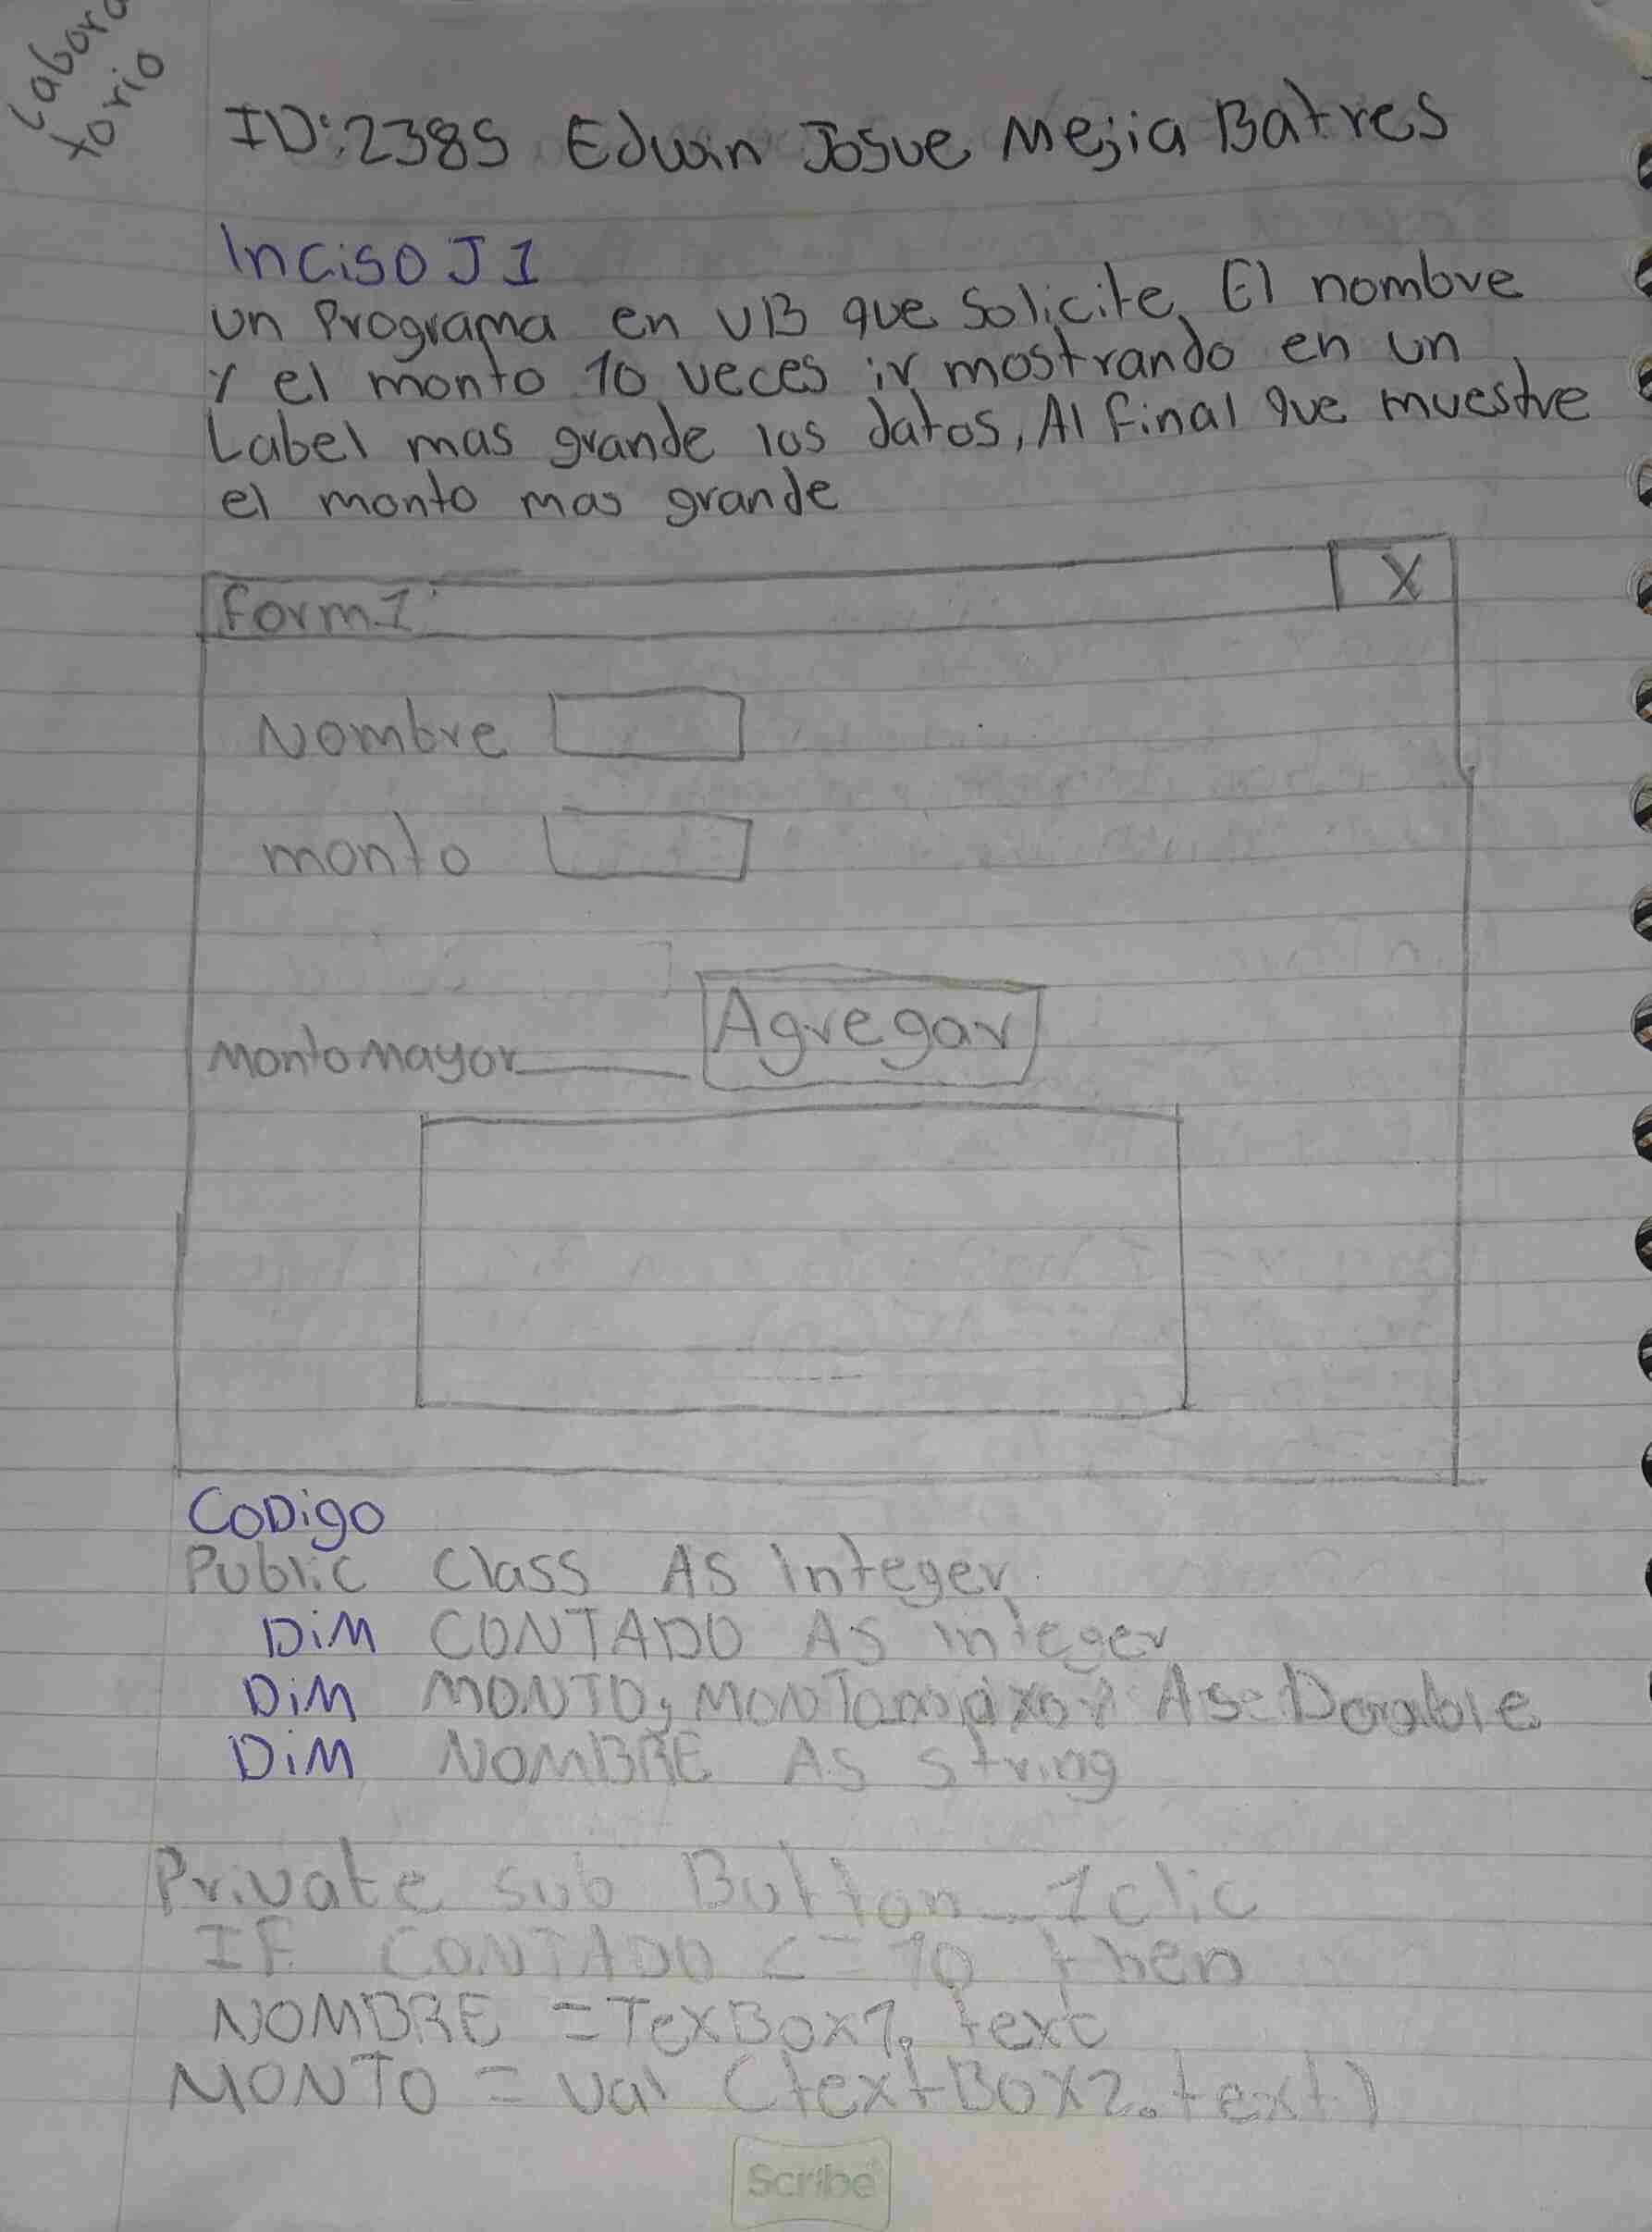 Labora
torio
ID:2385 Edwin Josue Mejia Batres
Inciso J1
un Programa en VB que Solicite El nombre
Y el monto 10 veces ir mostrando en un
Label mas grande los datos, Al final que muestre
el monto mas grande
Form1 X
Nombre
monto
Agregar
Monto Mayor
CoDigo
Public Class As Integer
DiM CONTADO As integer
DiM MONTO, As Dorable
DiM NOMBRE As string
Private sub Button_1clic
IF CONTADO <= 10 then
NOMBRE = TexBox1. text
MONTO = val (textBox2.text)
Scribe